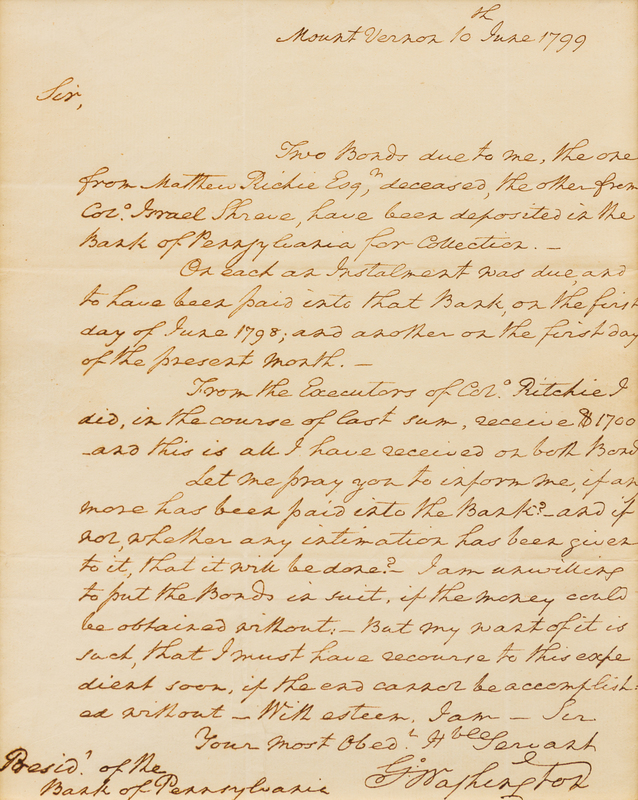 Mount Vernon 10th June 1799
Sir,
Two Bonds due to me, the one
from Mathew Richie Esqr, deceased, the other from
Colo. Israel Shreve, have been deposited in the
Bank of Pennsylvania for Collection. —
On each an Instalment was due, and
to have been paid into that Bank, on the first
day of June 1798; and another on the first day
of the present month. —
From the Executors of Colo. Ritchie I
did, in the course of last sum, receive $1700
—and this is all I have received on both Bond
Let me pray you to inform me, if an
more has been paid into the Bank?—and if
not, whether any intimation has been given
to it, that it will be done?— I am unwilling
to put the Bonds in suit, if the money could
be obtained without:— But my want of it is
such, that I must have recourse to this expe
dient soon, if the end cannot be accomplish-
ed without — With esteem, I am — Sir
Your most Obedt. Hble Servant
Go. Washington
Presidt. of the
Bank of Pennsylvania